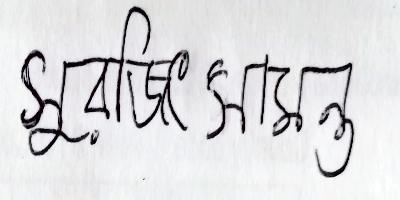 সুরজিৎ সামন্ত